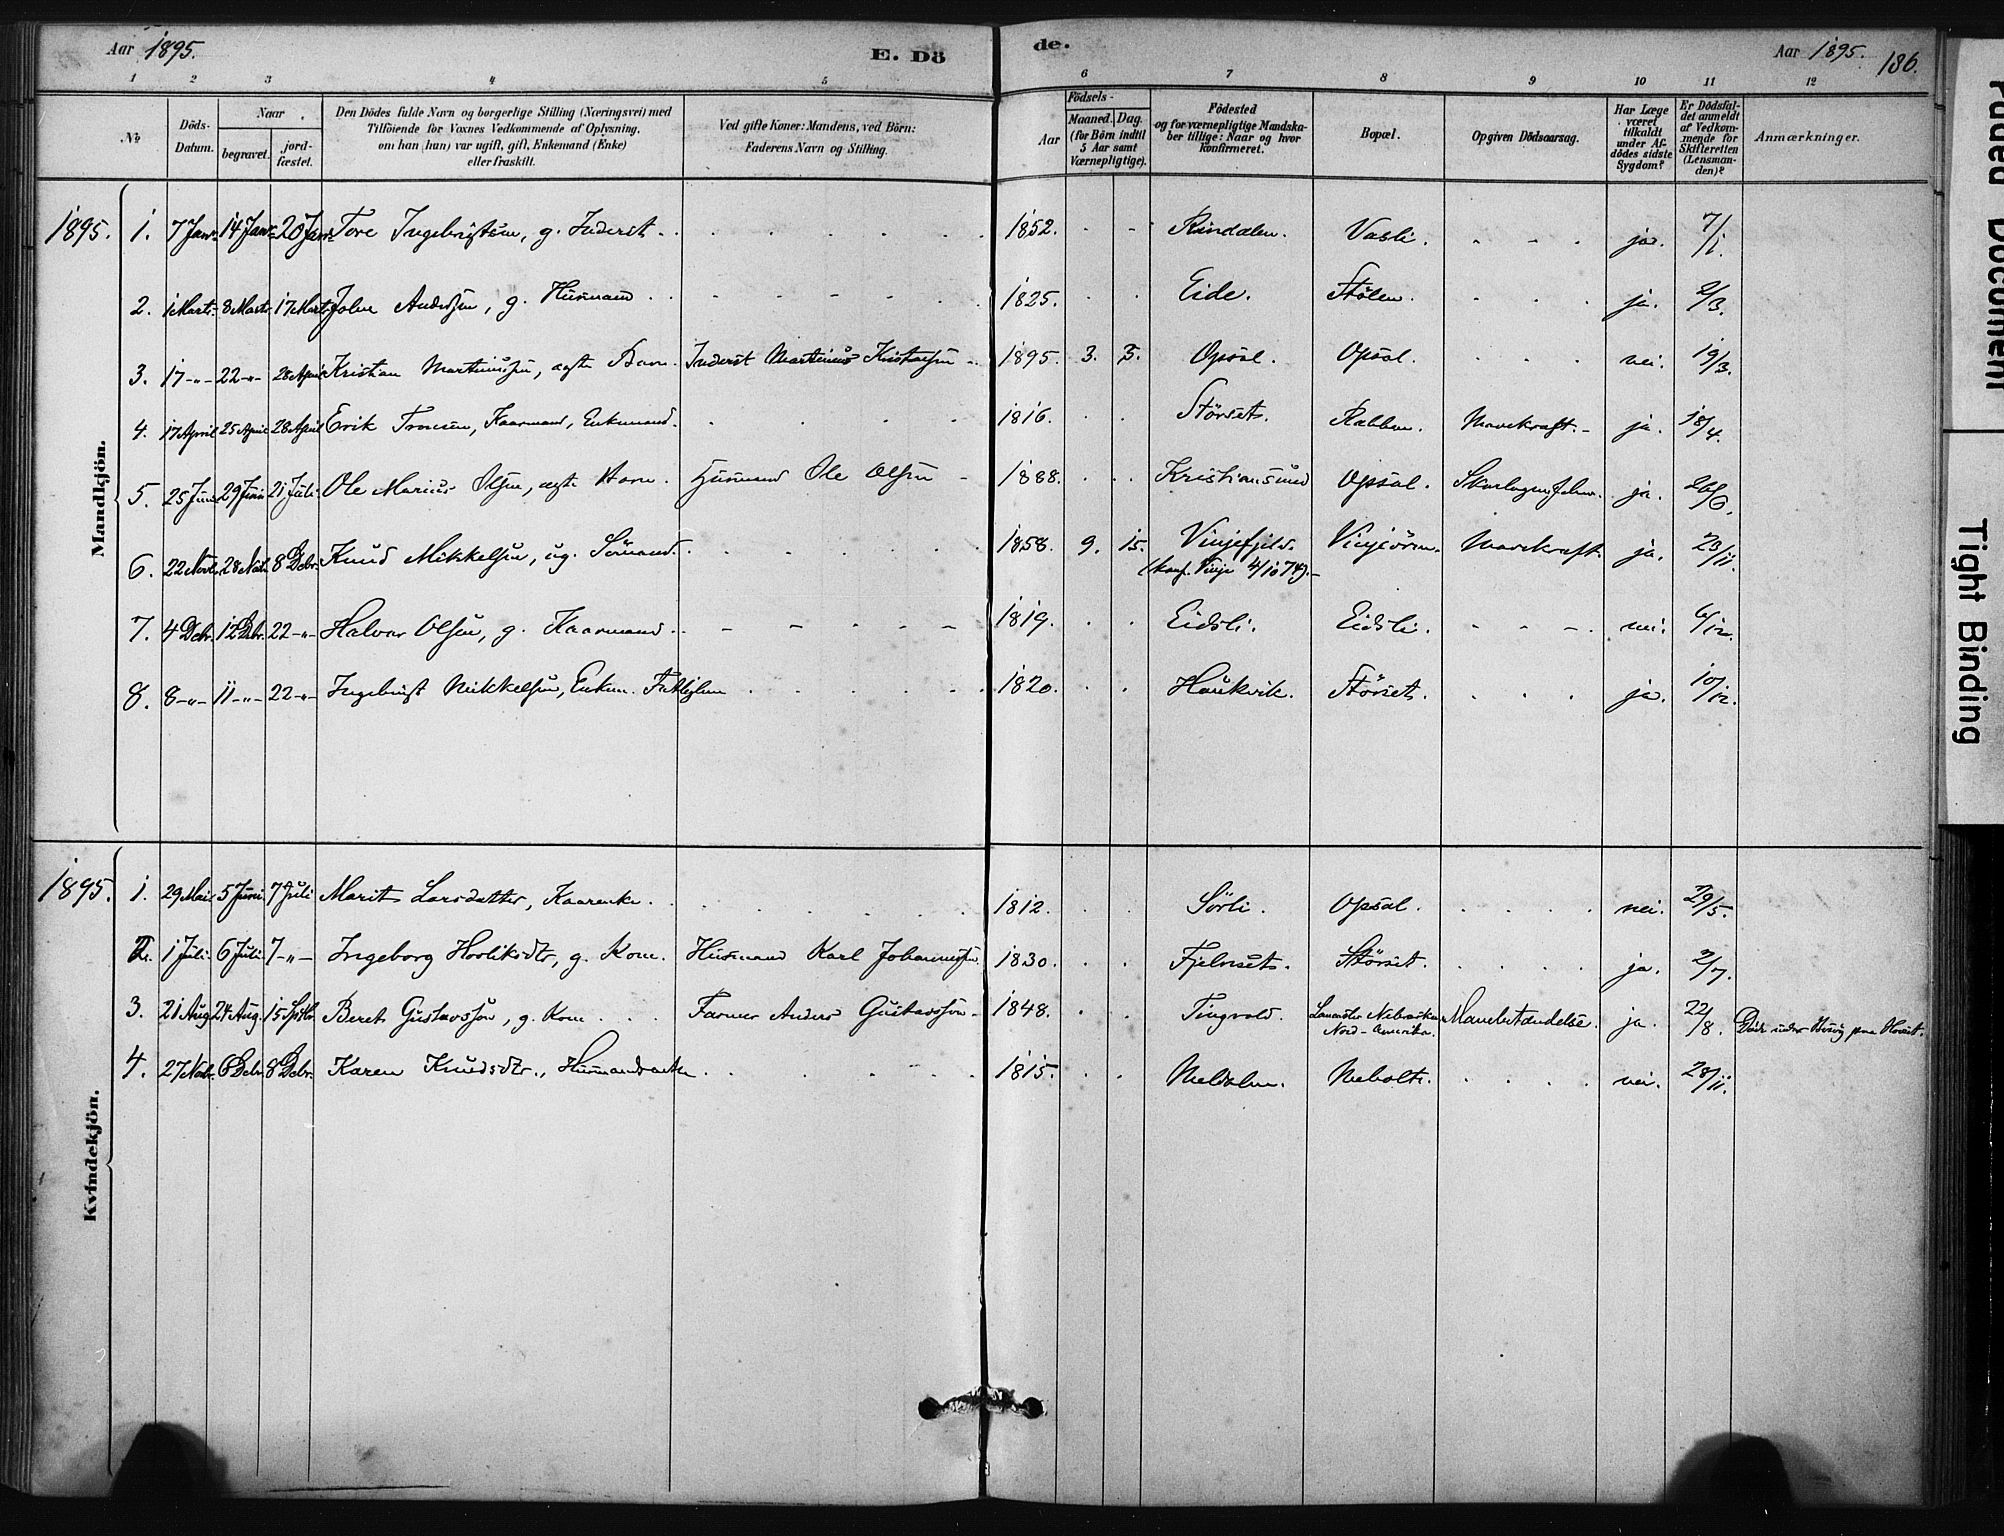 Aar 1895. E. Dö de. Aar 1895. 186.
1 2 3 4 5 6 7 8 9 10 11 12
No
Döds-Datum.
Naar
begravet.
jord-fæstet.
Den Dödes fulde Navn og borgerlige Stilling (Næringsvei) med
Tilföiende for Voxnes Vedkommende af Oplysning,
om han (hun) var ugift, gift, Enkemand (Enke)
eller fraskilt.
Ved gifte Koner: Mandens, ved Börn:
Faderens Navn og Stilling.
Födsels-
Aar
Maaned. Dag.
(for Börn indtil
5 Aar samt
Værnepligtige).
Födested
og for værnepligtige Mandska-
ber tillige: Naar og hvor
konfirmeret.
Bopæl.
Opgiven Dödsaarsag.
Har Læge
været
tilkaldt
under Af-
dödes sidste
Sygdom?
Er Dödsfal-
det anmeldt
af Vedkom-
mende for
Skifteretten
(Lensman-
den)?
Anmærkninger.
Mandkjön.
1895. 1. 7 Janr. 14 Janr. 20 Janr. Tore Ingebrigtsen, g. Inderst 1852. Rindalen. Vasli. ja. 7/1.
2. 1 Marts 8 Marts 17 Marts John Andersen, g. Husmand 1825. Eide. Stölen. ja. 2/3.
3. 17-"- 22-"- 28 April Kristian Martinussen, ægte Barn. Inderst Martinus Kristansen 1895. 3. 3. Opsal. Opsal. nei. 19/3.
4. 17 April 25 April 28 April Erik Tronsen, Kaarmand, Enkemand. 1816. Störset. Rabben. Mavekræft. ja. 18/4.
5. 25 Juni 29 Juni 21 Juli Ole Marius Olsen, ægte Barn. Husmand Ole Olsen 1888. Kristiansund Opsal. Skarlagensfeber. ja. 26/6.
6. 22 Novbr. 28 Nov. 8 Debr. Knud Mikkelsen, ug. Sömand. 1858. 9. 15. Vinjefjeld. Vinjeören. Mavekræft. ja. 23/11.
(konf. Vinje 4/10 74).
7. 4 Debr. 12 Debr. 22-"- Halvor Olsen, g. Kaarmand. 1819. Eidsli. Eidsli. nei. 6/12.
8. 8-"- 11-"- 22-"- Ingebrigt Mikkelsen, Enkem. Fattiglem 1820. Haukvik. Störset. ja. 10/12.
Kvindekjön.
1895. 1. 29 Mai 5 Juni 7 Juli Marit Larsdatter, Kaarenke. 1812. Sörli. Opsal. nei. 29/5.
2. 1 Juli 6 Juli 7-"- Ingeborg g. Kone. Husmand Karl Johannesen. 1830. Fjelnset. Störset. ja. 2/7.
3. 21 Aug 24 Aug. 15 Septbr. Beret Gustavsson, g. Kone Farmer Anders Gustavsson 1848. Tingvold. Lancaster Nebraska Mavebetændelse. ja. 22/8. Död under Besög paa
Nord-Amerika.
4. 27 Nobr. 6 Debr. 8 Debr. Karen Knudsdtr., Husmandsenke 1815. Meldalen. Neholt. nei. 28/11.
Faded Document
Tight Binding